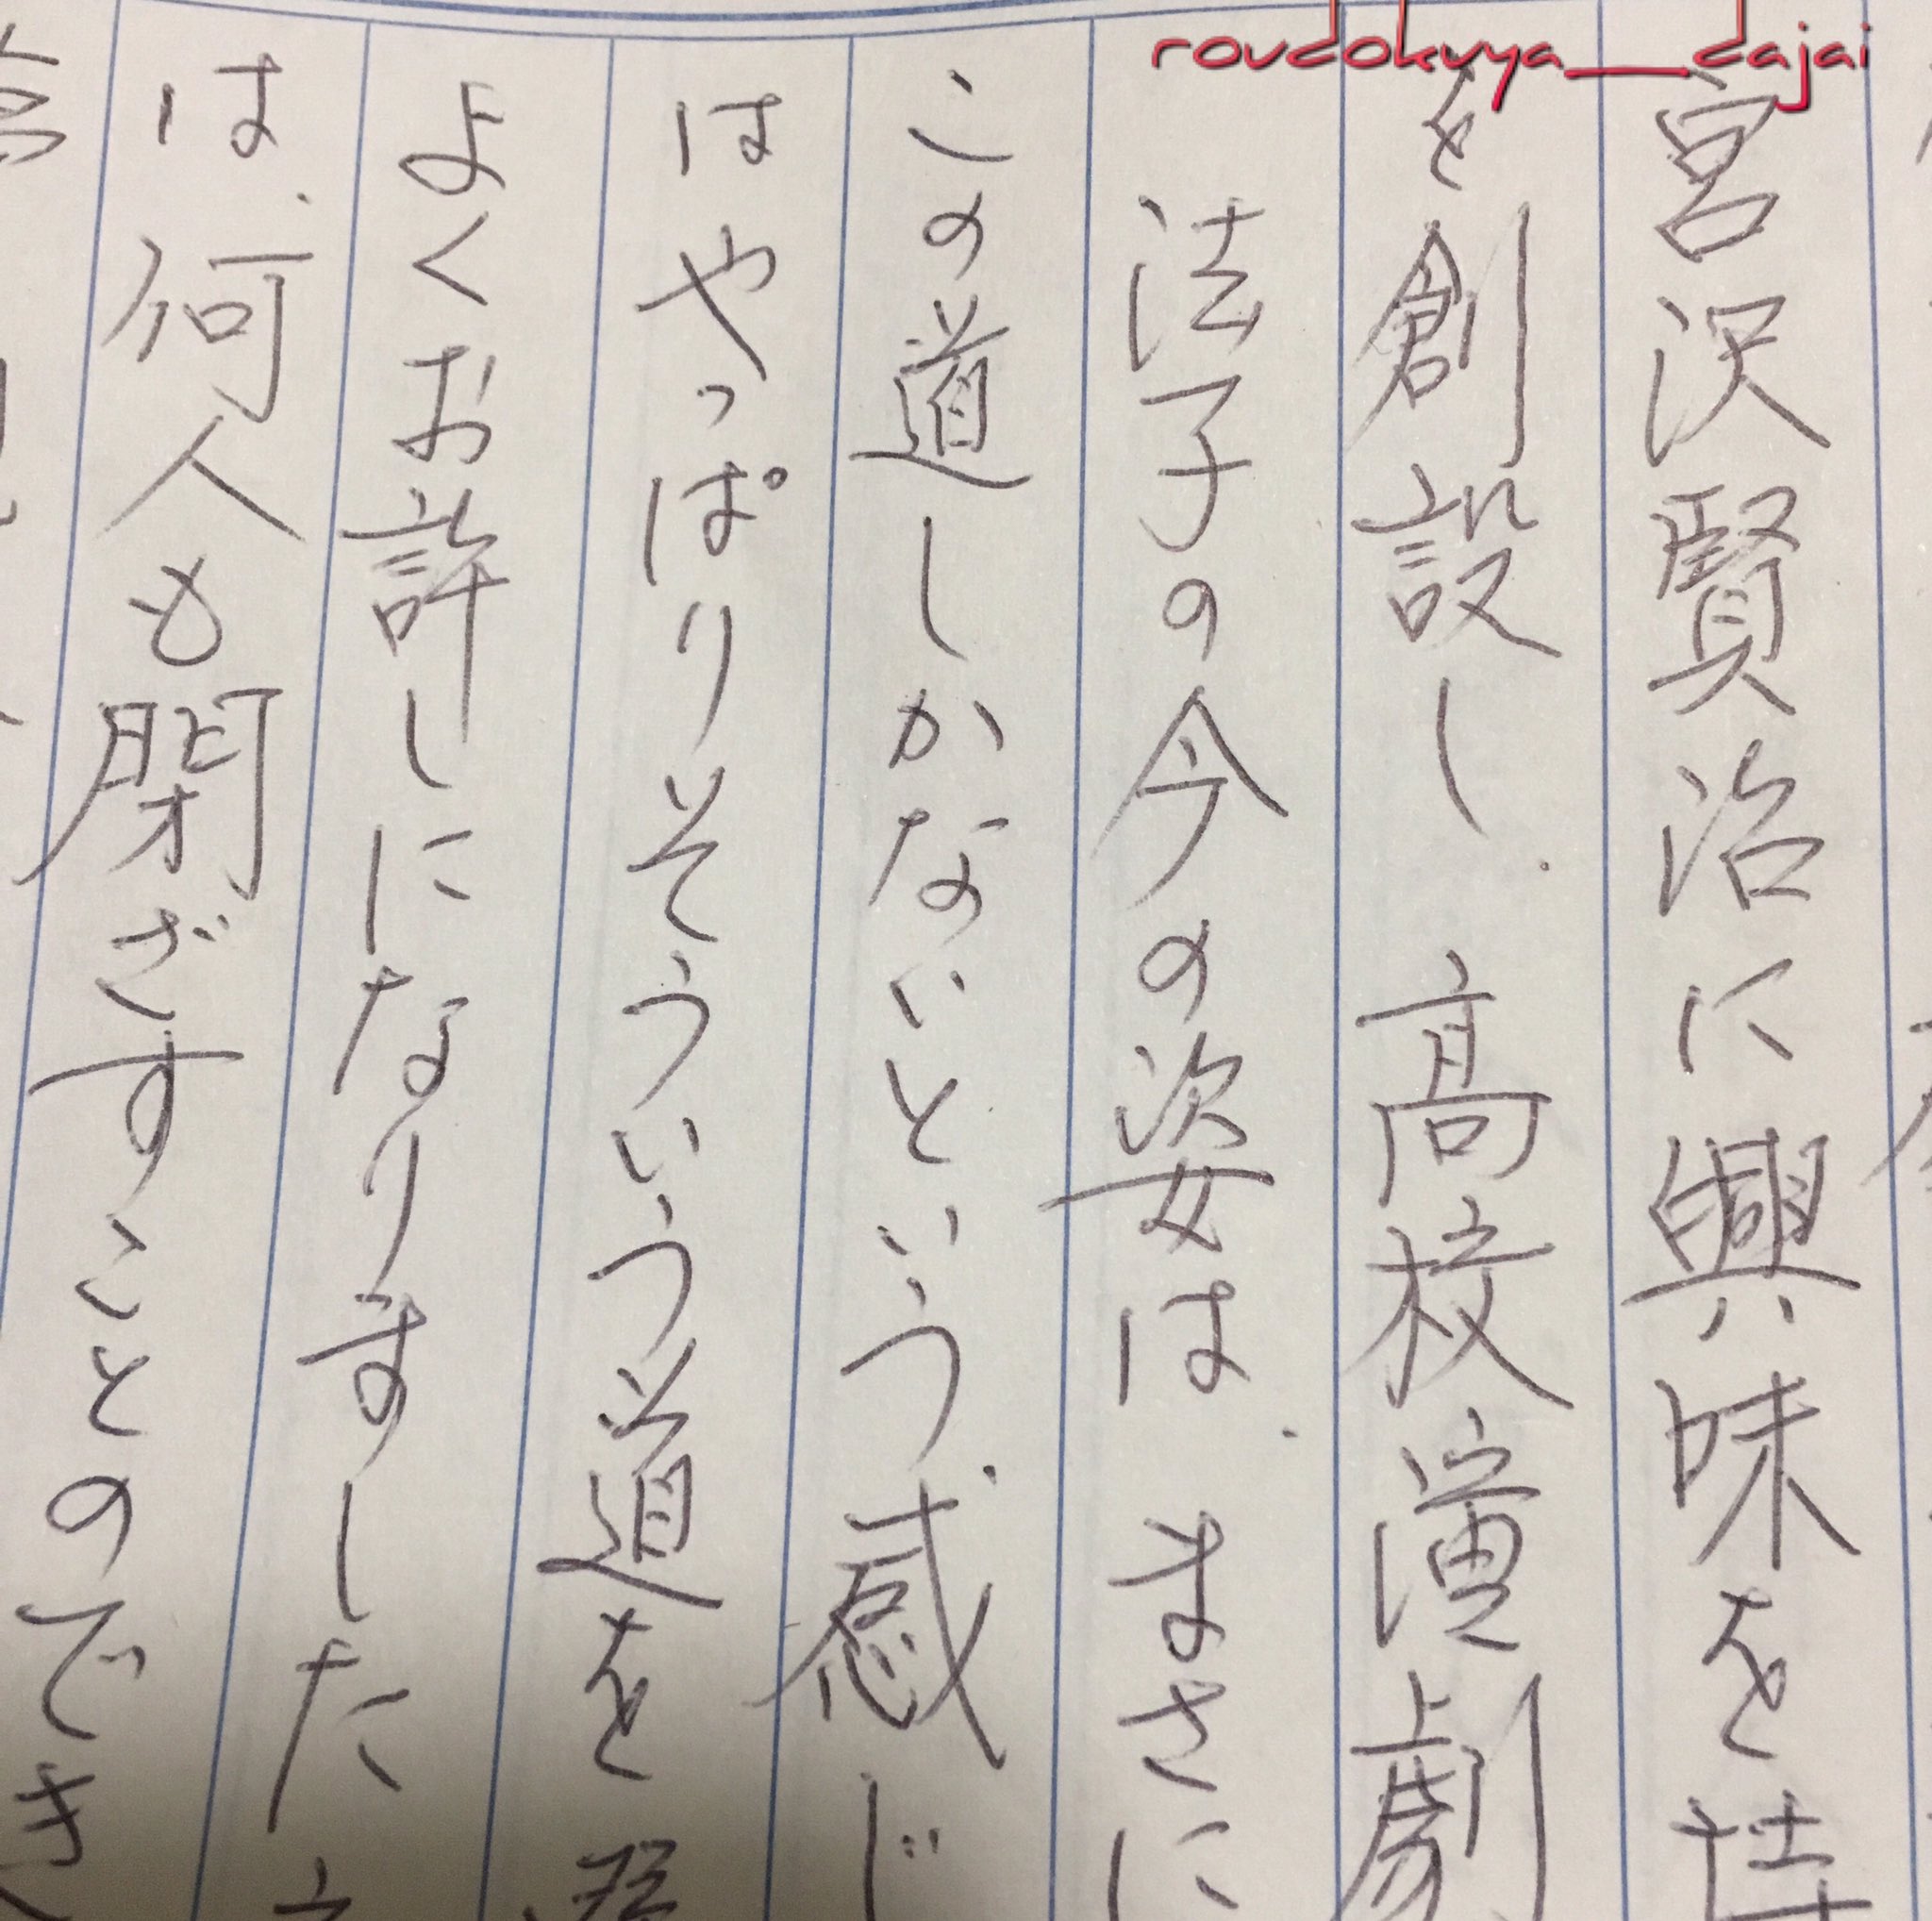 roudokuya__dajai
宮沢賢治に興味を持
を創設し、高校演劇
法子の今の姿は、まさに
この道しかないという、感じ
はやっぱりそういう道を
よくお許しになりました
は、何人も閉ざすことのでき